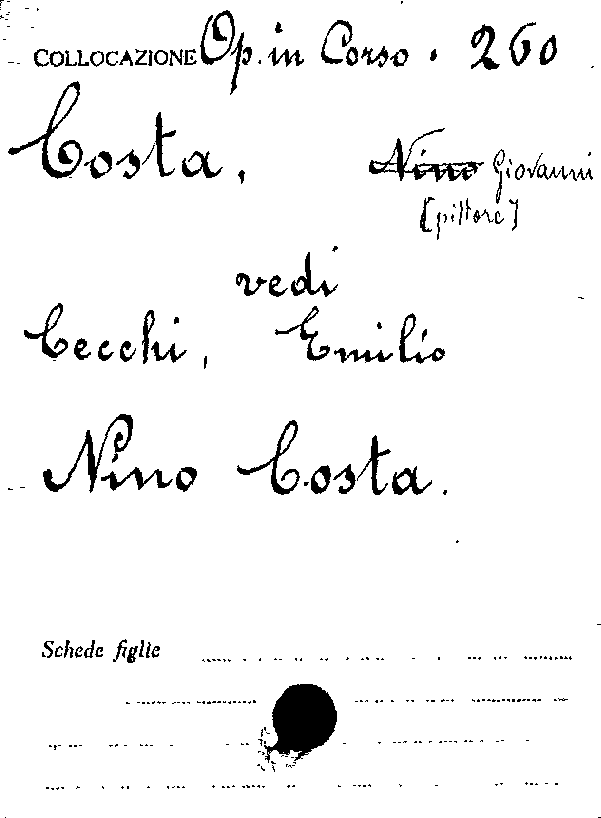 COLLOCAZIONE Op. in Corso. 260
Costa, Nino Giovanni
[pittore]
vedi
Cecchi, Emilio
Nino Costa.
Schede figlie